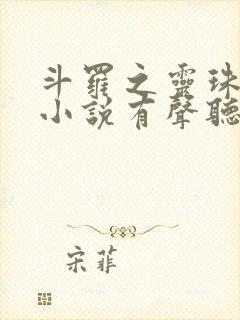 斗羅之靈珠
小說有聲聽
宋菲